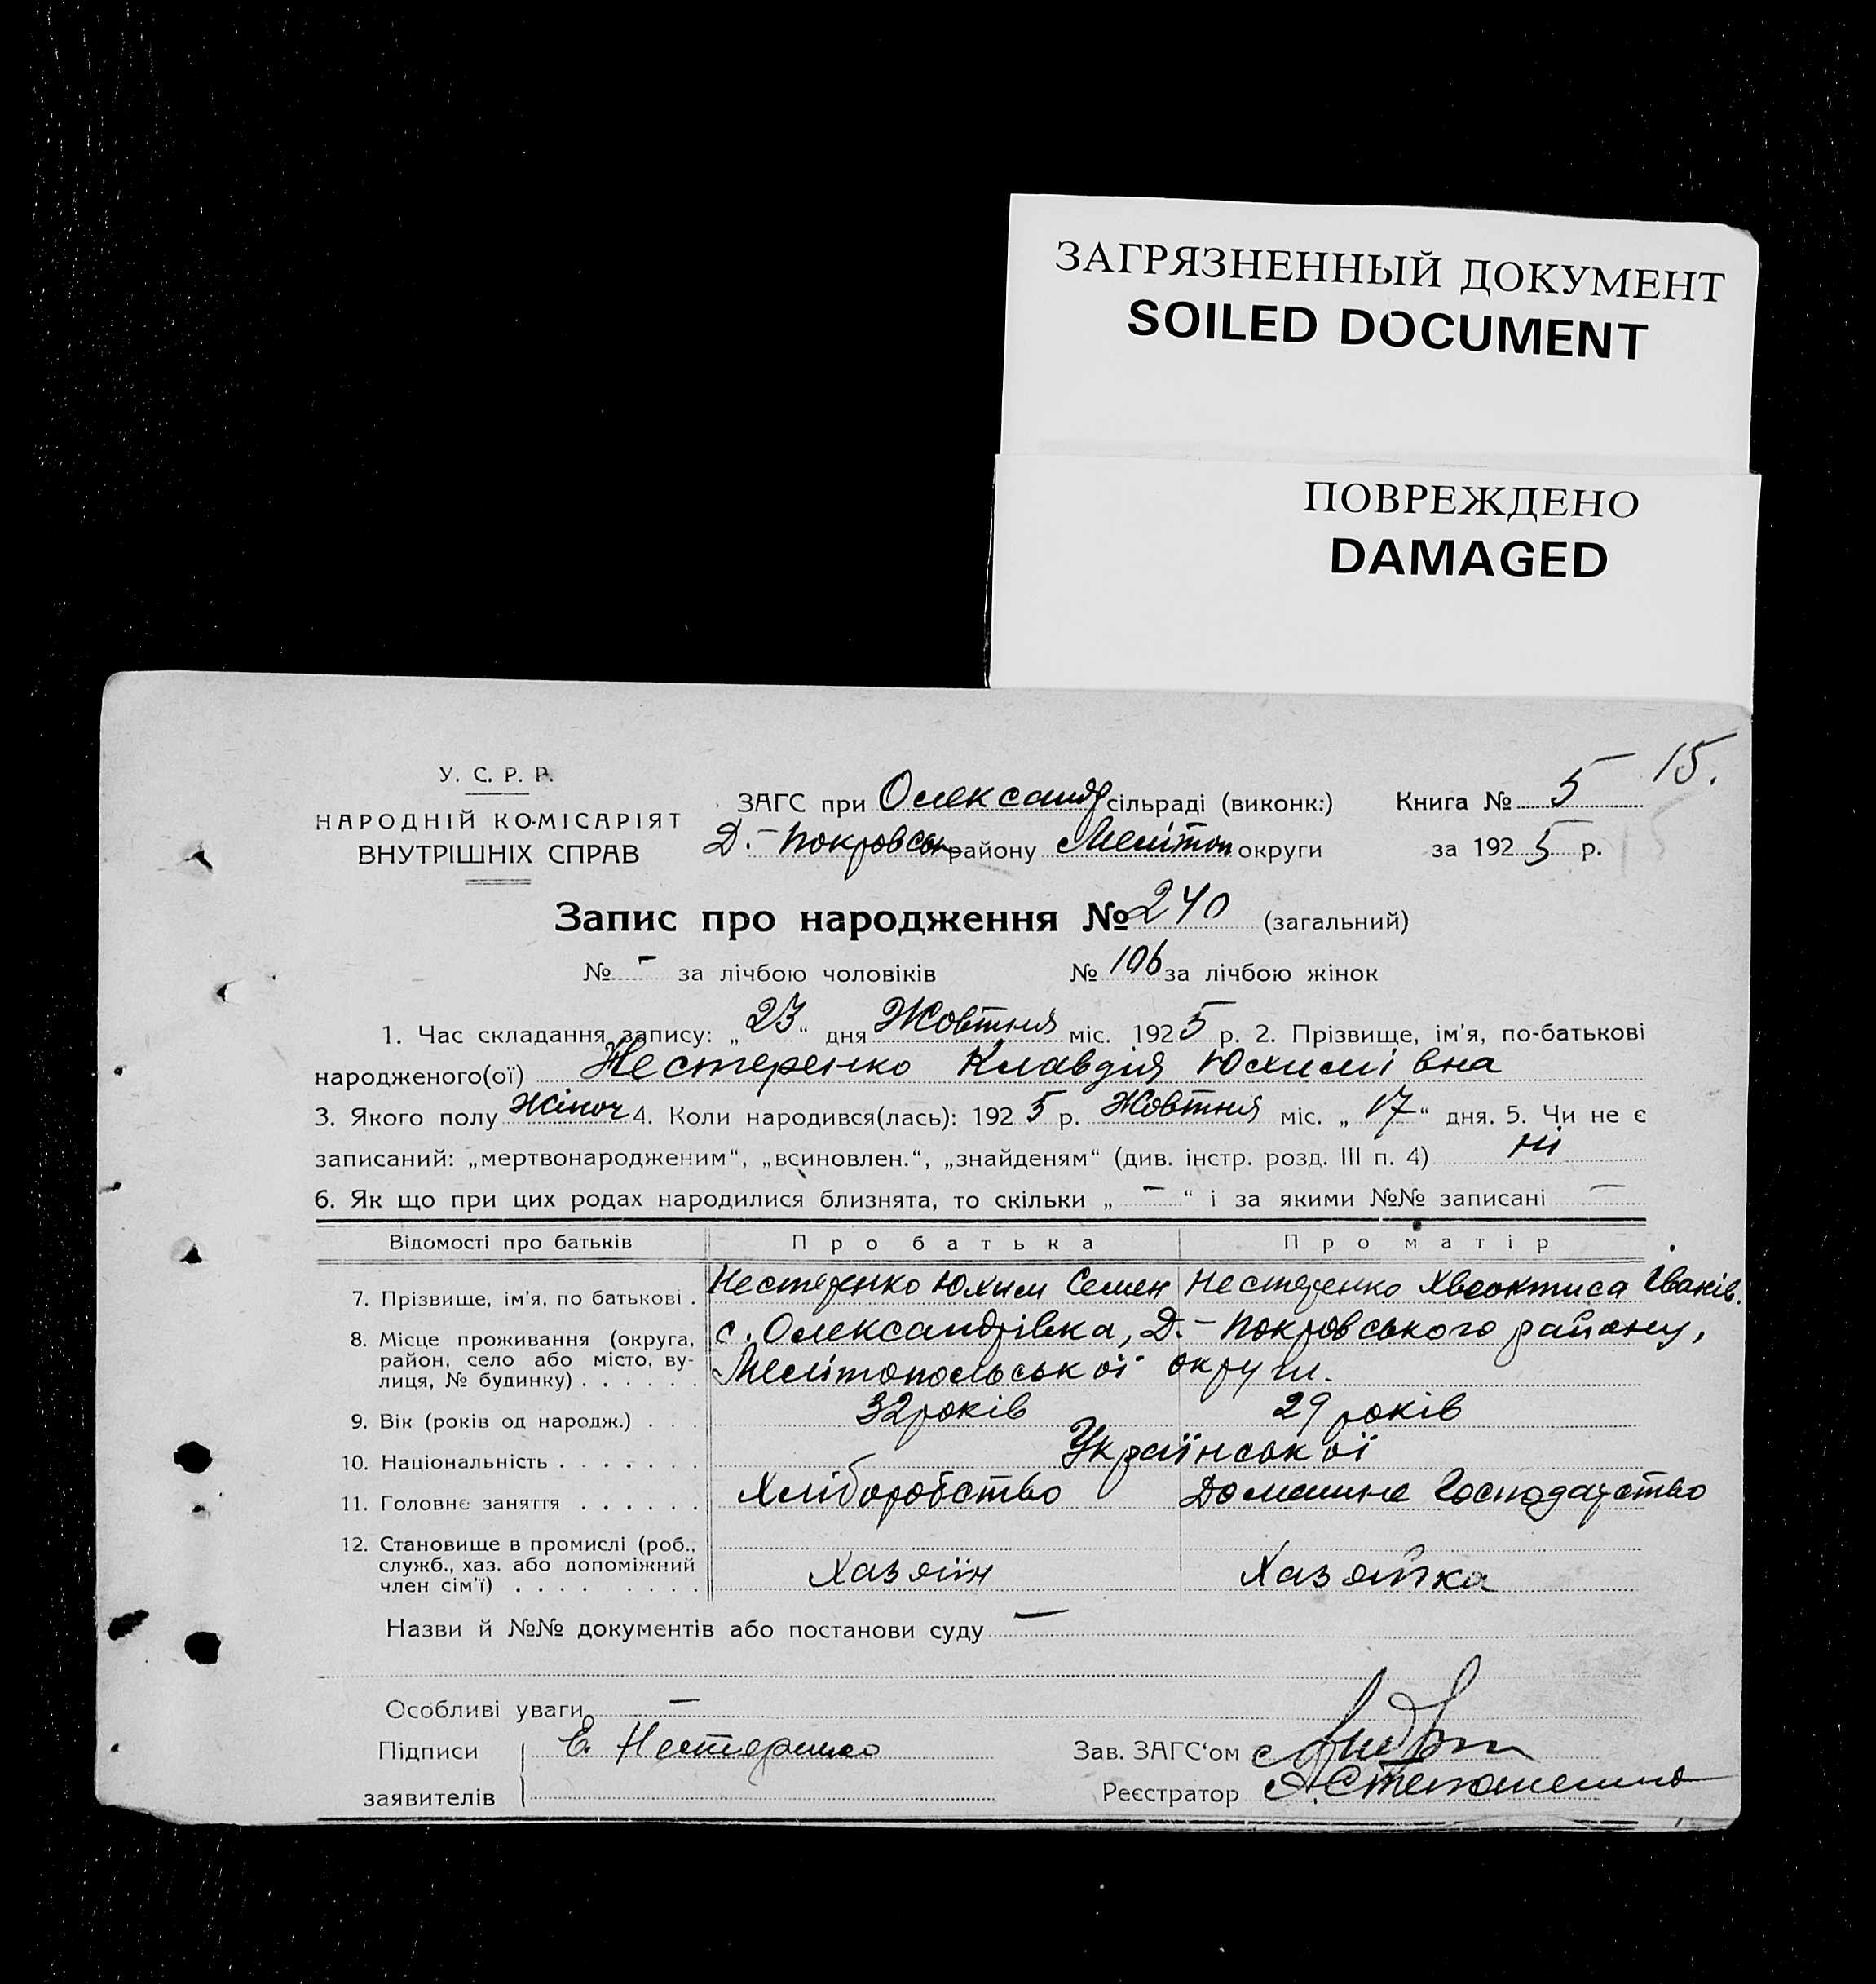 ЗАГРЯЗНЕННЫЙ ДОКУМЕНТ
SOILED DOCUMENT
ПОВРЕЖДЕНО
DAMAGED
15.
У. С. Р. Р.
НАРОДНІЙ КОМІСАРІЯТ
ВНУТРІШНІХ СПРАВ
ЗАГС при Олександр сільраді (виконк:) Книга № 5
Д.-Покровськ району Мелітоп округи за 1925 р.
Запис про народження № 240 (загальний)
№ - за лічбою чоловіків № 106 за лічбою жінок
1. Час складання запису: „23“ дня Жовтня міс. 1925 р. 2. Прізвище, ім'я, по-батькові
народженого(ої) Нестеренко Клавдія Юхимівна
3. Якого полу жіноч 4. Коли народився(лась): 1925 р. Жовтня міс. „17“ дня. 5. Чи не є
записаний: „мертвонародженим“, „всиновлен.“, „знайденям“ (див. інстр. розд. III п. 4) ні
6. Як що при цих родах народилися близнята, то скільки „ - “ і за якими №№ записані -
Відомості про батьків Про батька Про матір
7. Прізвище, ім'я, по батькові . Нестеренко Юхим Семен Нестеренко Хвеоктиса Іванів.
8. Місце проживання (округа, район, село або місто, вулиця, № будинку) . . . . . . с. Олександрівка, Д.-Покровського району,
Мелітопольської округи.
9. Вік (років од народж.) . . . 32 років 29 років
10. Національність . . . . . . . Української
11. Головне заняття . . . . . . Хліборобство Домашнє Господарство
12. Становище в промислі (роб., служб., хаз. або допоміжний член сім'ї) . . . . . . . . Хазяїн Хазяйка
Назви й №№ документів або постанови суду -
Особливі уваги -
Підписи Е. Нестеренко Зав. ЗАГС'ом
заявителів Реєстратор